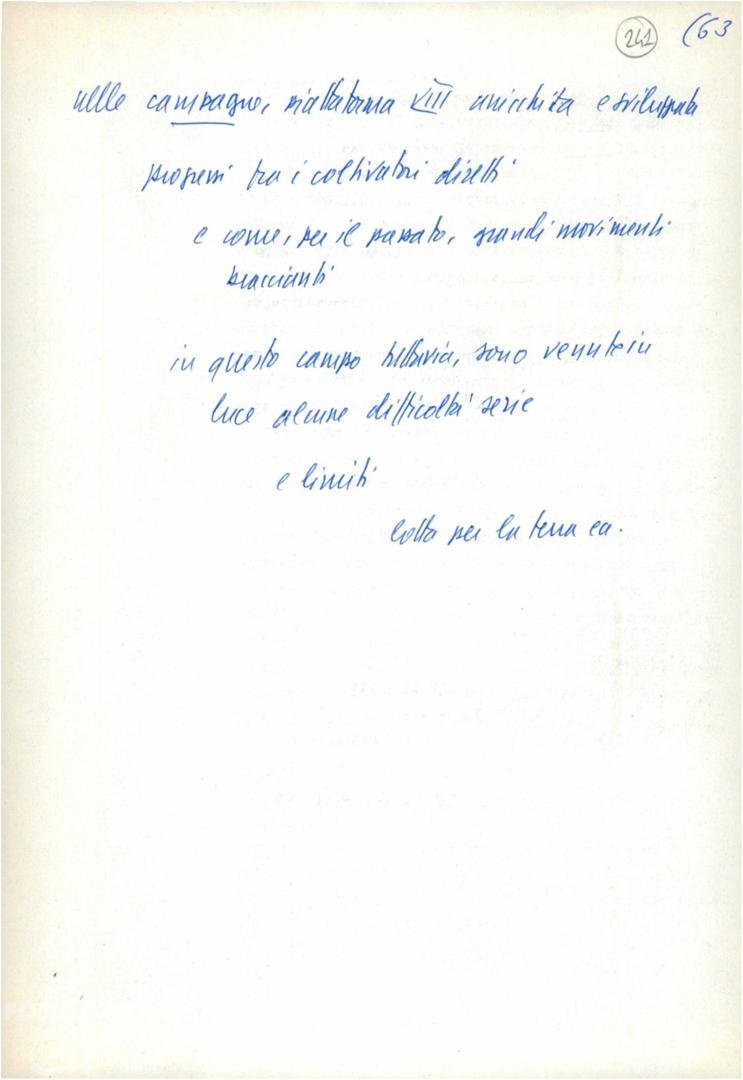 241 (63
nelle campagne, piattaforma VIII arricchita e sviluppata
progressi tra i coltivatori diretti
e come, per il passato, grandi movimenti
braccianti
in questo campo tuttavia, sono venute in
luce alcune difficoltà serie
e limiti
lotta per la terra